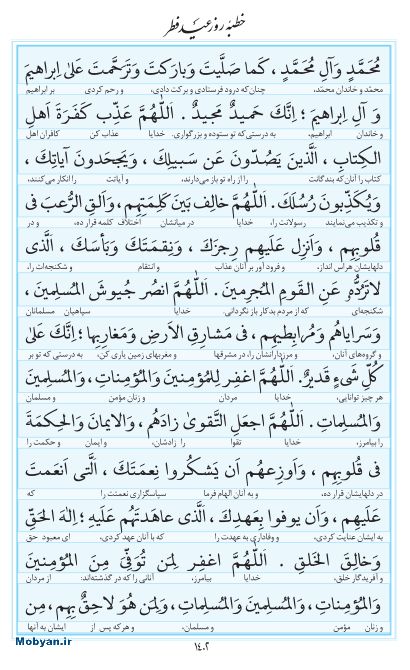 خطبهٔ روز عید فطر
مُحَمَّدٍ وَآلِ مُحَمَّدٍ ، كَما صَلَّيتَ وَبارَكتَ وَتَرَحَّمتَ عَلىٰ اِبراهيمَ
محمّد و خاندان محمّد، چنان‌که درود فرستادی و برکت دادی، و رحم کردی بر ابراهیم
وَ آلِ اِبراهيمَ ؛ اِنَّكَ حَميدٌ مَجيدٌ . اَللّٰهُمَّ عَذِّب كَفَرَةَ اَهلِ
و خاندان ابراهیم، به درستی‌که تو ستوده و بزرگواری. خدایا عذاب کن کافران اهل
الكِتابِ ، الَّذينَ يَصُدّونَ عَن سَبيلِكَ ، وَيَجحَدونَ آياتِكَ ،
کتاب را آنان‌که بندگانت را از راه تو باز می‌دارند، و آیاتت را انکار می‌کنند،
وَيُكَذِّبونَ رُسُلَكَ . اَللّٰهُمَّ خالِف بَينَ كَلِمَتِهِم ، وَاَلقِ الرُّعبَ فى
و تکذیب می‌نمایند رسولانت را، خدایا در میانشان اختلاف کلمه قرار ده، و در
قُلوبِهِم ، وَاَنزِل عَلَيهِم رِجزَكَ ، وَنِقمَتَكَ وَبَأسَكَ ، الَّذى
دلهایشان هراس انداز، و فرود آور بر آنان عذاب و انتقام و شکنجه‌ات را،
لاتَرُدُّهُ عَنِ القَومِ المُجرِمينَ . اَللّٰهُمَّ انصُر جُيوشَ المُسلِمينَ ،
شکنجه‌ای که از مردم بدکار باز نگردانی. خدایا سپاهیان مسلمانان
وَسَراياهُم وَمُرابِطيهِم ، فى مَشارِقِ الاَرضِ وَمَغارِبِها ؛ اِنَّكَ عَلىٰ
و گروه‌های آنان، و مرزدارانشان را، در مشرقها و مغربهای زمین یاری کن، به درستی که تو بر
كُلِّ شَىءٍ قَديرٌ . اَللّٰهُمَّ اغفِر لِلمُؤمِنينَ وَالمُؤمِناتِ ، وَالمُسلِمينَ
هر چیز توانایی، خدایا مردان و زنان مؤمن و مسلمان
وَالمُسلِماتِ . اَللّٰهُمَّ اجعَلِ التَّقوىٰ زادَهُم ، وَالايمانَ وَالحِكمَةَ
را بیامرز، خدایا تقوا را زادشان، و ایمان و حکمت را
فى قُلوبِهِم ، وَاَوزِعهُم اَن يَشكُروا نِعمَتَكَ ، الَّتى اَنعَمتَ
در دلهایشان قرار ده، و به آنان الهام فرما سپاسگزاری نعمتت را که
عَلَيهِم ، وَاَن يوفوا بِعَهدِكَ ، الَّذى عاهَدتَهُم عَلَيهِ ؛ اِلٰهَ الحَقِّ
به ایشان عنایت کردی، و وفاداری به عهدت را که با آنان عهد کردی، ای معبود حق
وَخالِقَ الخَلقِ . اَللّٰهُمَّ اغفِر لِمَن تُوُفِّىَ مِنَ المُؤمِنينَ
و آفریدگار خلق، خدایا بیامرز، آنانی را که در گذشته‌اند: از مردان
وَالمُؤمِناتِ ، وَالمُسلِمينَ وَالمُسلِماتِ ، وَلِمَن هُوَ لاحِقٌ بِهِم ، مِن
و زنان مؤمن و مسلمان، و هر که پس از ایشان به آنها می‌پیوندد،
۱۴۰۲
Mobyan.ir